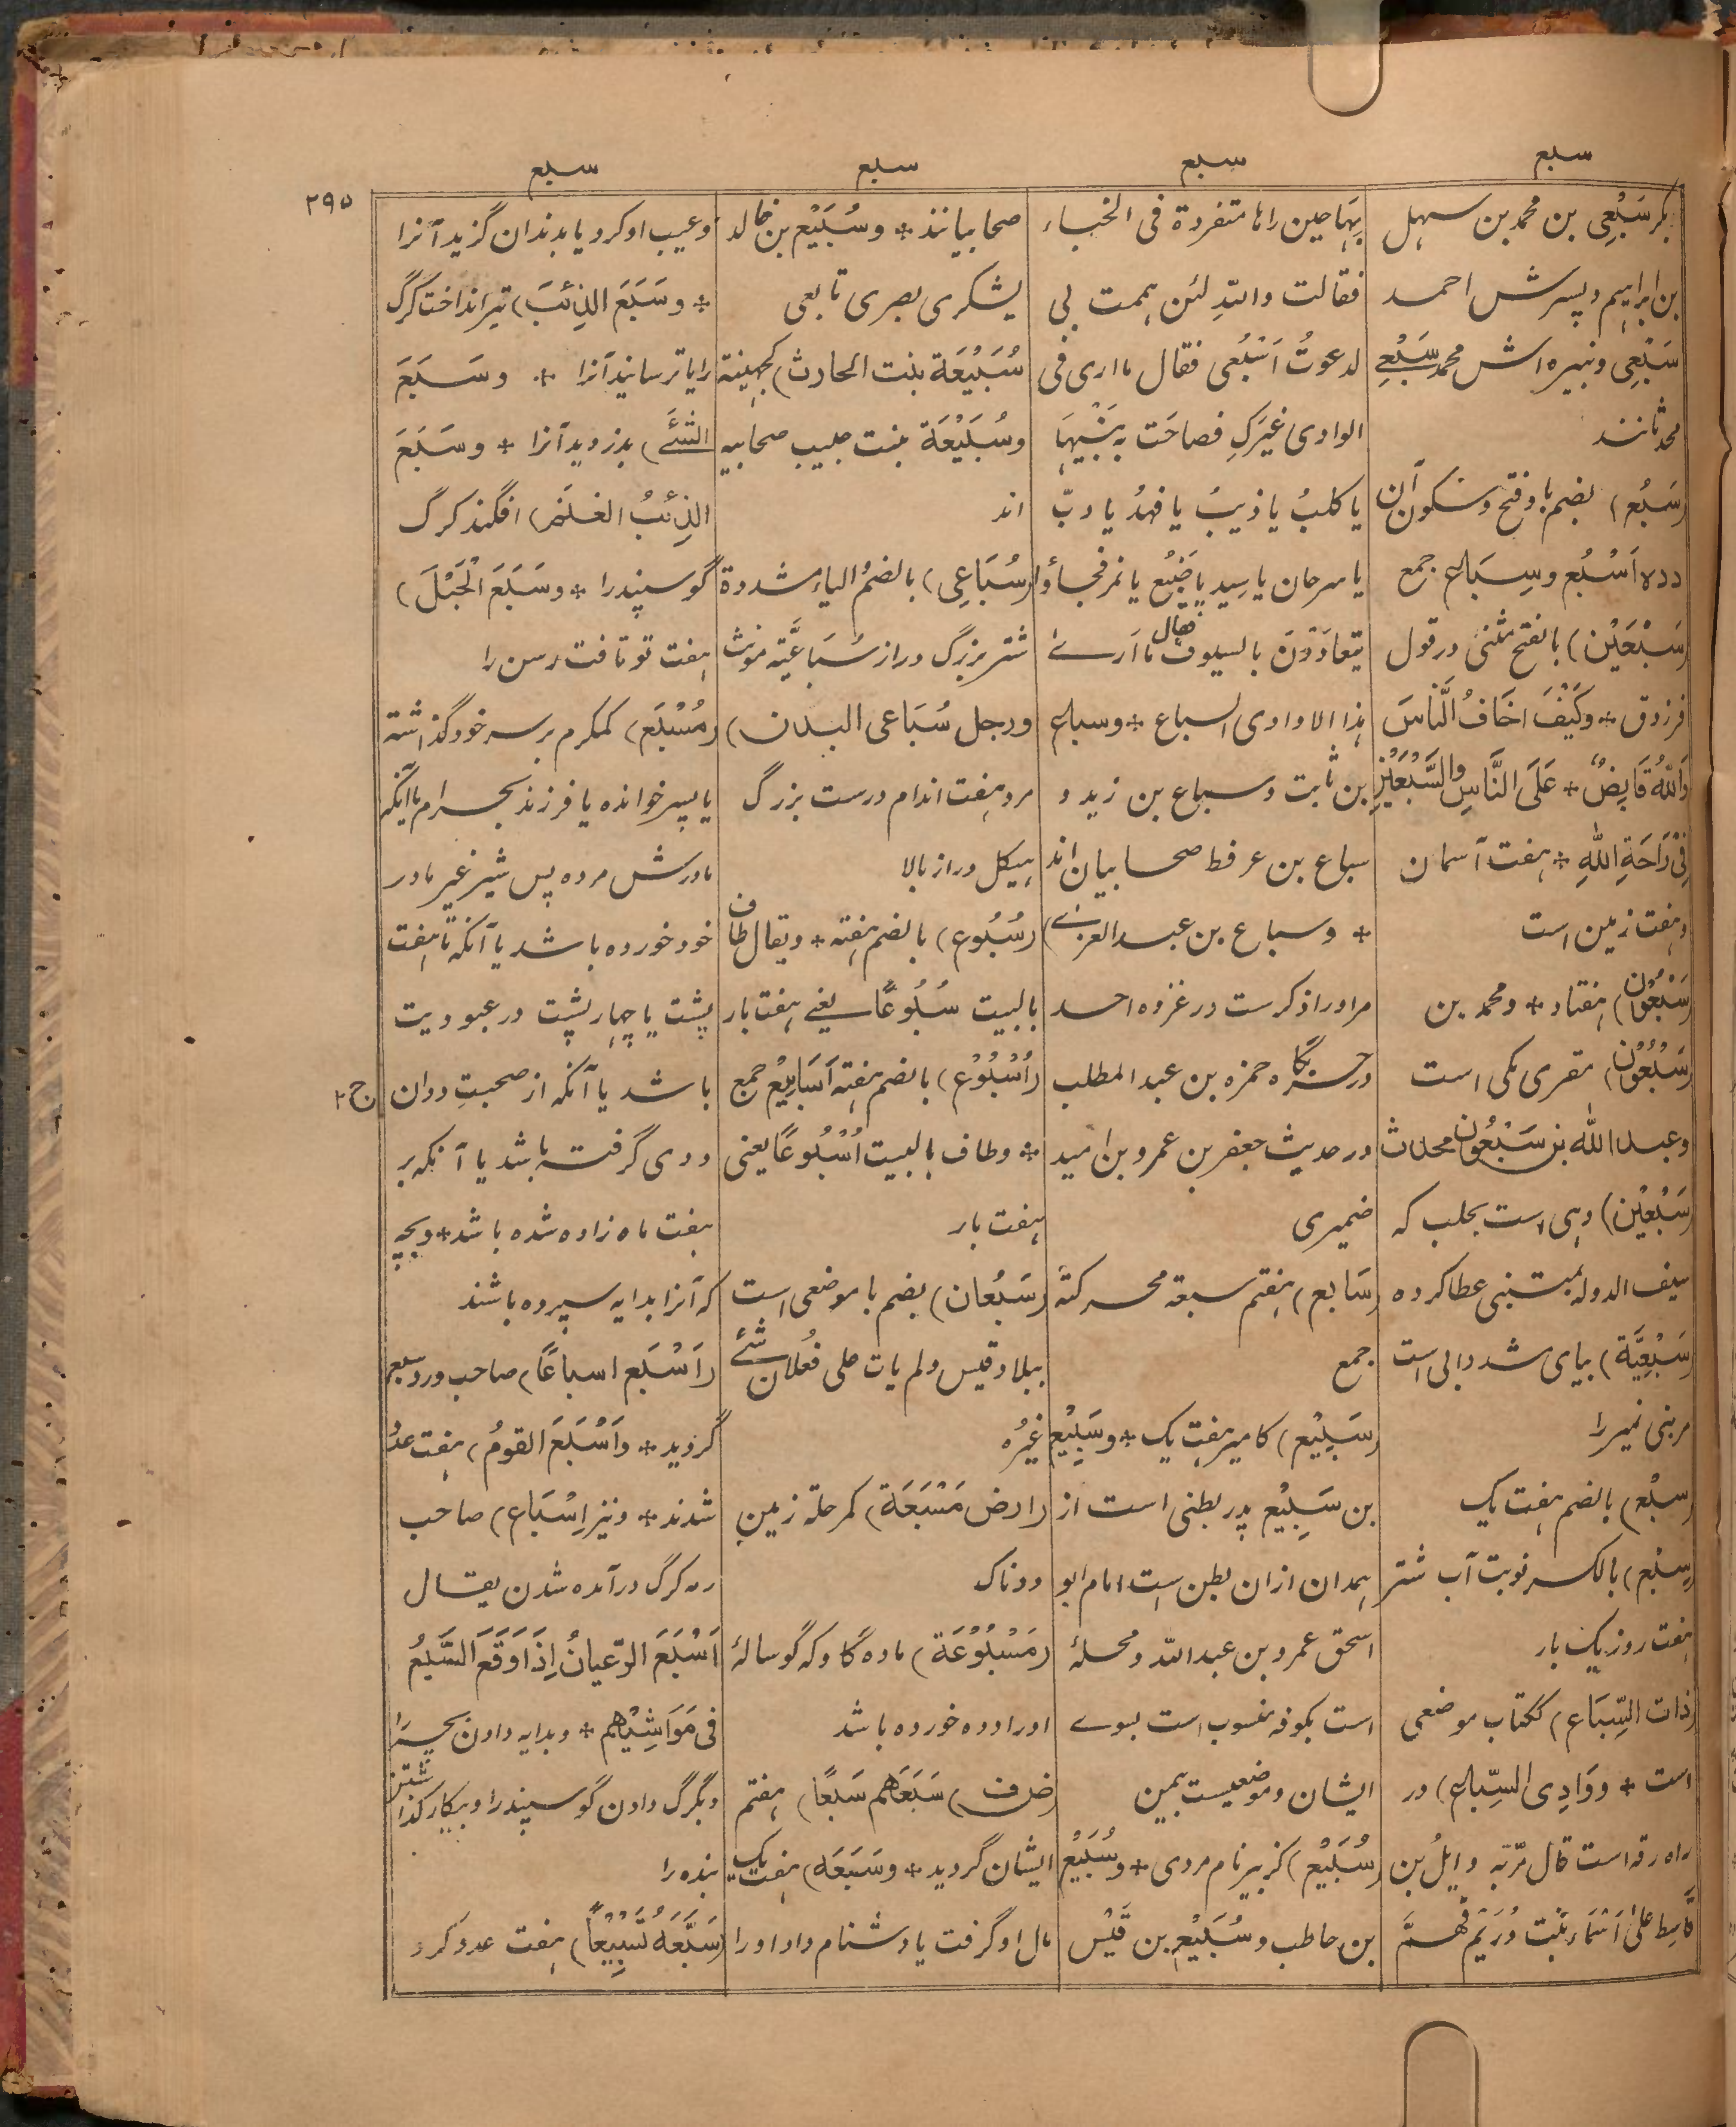 سبع
سبع
سبع
سبع
٢٩٥
بکر سَبْعِی بن محمد بن سہل
بن ابراہیم و پسرش احمد
سَبْعِی و نبیرہ اش محمد سَبْعِی
محدثانند
(سَبُع) بضم با و فتح و سکون آن
ددہ اَسْبُع و سِبَاع جمع
(سَبْعَیْن) بالفتح مثنی در قول
فرزدق * وَکَیْفَ اَخَافُ النَّاسَ
وَاللّٰہُ قَابِضٌ * عَلَی النَّاسِ وَالسَّبْعَیْنِ
فِیْ رَاحَةِ اللّٰهِ * ہفت آسمان
و ہفت زمین است
(سَبْعُوْن) ہفتاد * و محمد بن
(سَبْعُوْن) مقری مکی است
و عبد اللّٰه بن سَبْعُوْن محدث
(سَبْعِیْن) دہی است بحلب کہ
سیف الدولہ بمتنبی عطا کردہ
(سَبْعِیَّة) بیای مشدد آبی است
مر بنی نمیر را
(سبْع) بالضم ہفت یک
(سِبْع) بالکسر نوبت آب شتر
ہفت روز یک بار
(ذات السِّبَاع) ککتاب موضعی
است * و وَادِی السِّبَاع) در
راہ رقہ است قال مرّ بہ وایلُ بن
قَاسِط عَلیٰ اَسْمَاءَ بنت دُرَیْم فَہَمَّ
بِہَا حین راٰہا متفردة فی الخباء
فقالت واللّٰہِ لئن ہممت بی
لدعوتُ اَسْبُعی فقال ما اری فی
الوادی غیَرکِ فصاحَت بِبَنِیْہَا
یا کلبُ یا ذیبُ یا فہدُ یا دبّ
یا سرحان یا سِید یا ضَبُع یا نمر فجاؤا
یتعادَوْنَ بالسیوف فقال ما اَریٰ
ہذا الا وادی السباع * و سباع
بن ثابت و سباع بن زید و
سباع بن عرفطہ صحابیان اند
* و سباع بن عبد العزیٰ)
مر او را ذکرست در غزوہ احد
در جنگ گاہ حمزہ بن عبد المطلب
در حدیث جعفر بن عمرو بن امیہ
ضمیری
(سَابع) ہفتم سبعة محرکةً
جمع
(سَبِیْع) کامیر ہفت یک * و سَبِیْع
بن سَبِیْع پدر بطنی است از
ہمدان ازان بطن است امام ابو
اسحق عمرو بن عبد اللّٰہ و محلۂ
است بکوفہ منسوب است بسوے
ایشان و موضعیست بیمن
(سُبَیْع) کزبیر نام مردی * و سُبَیْع
بن حاطب و سُبَیْع بن قَیْس
صحابیانند * و سُبَیْع بن خالد
یشکری بصری تابعی
سُبَیْعَة بنت الحارث) کجہینة
و سُبَیْعَة بنت حبیب صحابیہ
اند
(سُبَاعِی) بالضم و الیاء مشددة
شتر بزرگ دراز سُبَاعِیَّة مونث
و رجل سُبَاعی البدن)
مرد ہفت اندام درست بزرگ
ہیکل دراز بالا
(سُبُوع) بالضم ہفتہ * و یقال طاف
بالبیت سُبُوعًا یعنے ہفت بار
(اُسْبُوْع) بالضم ہفتہ اَسَابِیْع جمع
* و طاف بالبیت اُسْبُوعًا یعنی
ہفت بار
(سَبُعَان) بضم با موضعی است
ببلاد قیس و لم یات علی فَعُلان شئے
غیرُہ
(ارض مَسْبَعَة) کمرحلة زمین
ددناک
(مَسْبُوْعَة) مادہ گاو کہ گوسالۂ
او را ددہ خوردہ باشد
(ض ف) سَبَعَهُم سَبعًا) ہفتم
ایشان گردید * و سَبَعَه) ہفت یک
مال او گرفت یا دشنام داد او را
و عیب او کرد یا بدندان گزید آنرا
* و سَبَعَ الذِئبَ) تیر انداخت گرگ
را یا ترسانید آنرا * و سَبَعَ
الشَّئَ) بدزدید آنرا * و سَبَعَ
الذِئبُ الغَنَمَ) افگند گرگ
گوسپند را * و سَبَعَ الْحَبْلَ)
ہفت تو تافت رسن را
(مُسْبَع) کمکرم بر سر خود گذاشتہ
یا پسر خواندہ یا فرزند بحرام یا آنکہ
مادرش مردہ پس شیر غیر مادر
خود خوردہ باشد یا آنکہ تا ہفت
پشت یا چہار پشت در عبودیت
باشد یا آنکہ از صحبتِ ددان
ج ٢
ددی گرفتہ باشد یا آنکہ بر
ہفت ماہ زادہ شدہ باشد * و بچہ
کہ آنرا بدایہ سپردہ باشند
(اَسْبَع اسباعًا) صاحب ورد سبع
گردید * و اَسْبَعَ القومُ) ہفت عدد
شدند * و نیز اِسْبَاع) صاحب
رمہ گرگ درآمدہ شدن یقال
اَسْبَعَ الرّعیانُ اِذَا وَقَعَ السَّبُعُ
فی مَوَاشِیْهِم * و بدایہ دادن بچہ را
و بگرگ دادن گوسپند را و بیکار گذاشتن
بندہ را
(سَبَّعَهُ تَسْبِیْعًا) ہفت عدد کرد